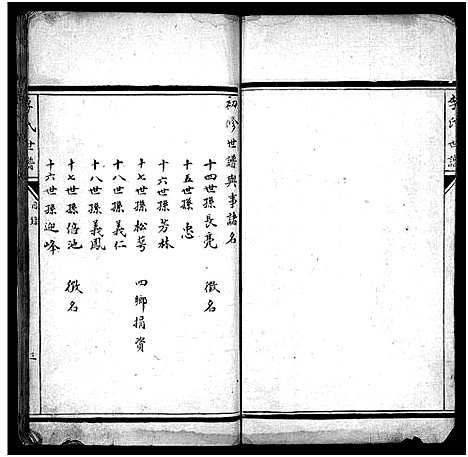 李氏世譜
初修世譜與事諸名
十四世孫長亮 徵名
十五世孫忠
十六世孫芳林
十七世孫松萼 四鄉捐資
十八世孫義仁
十八世孫義鳳
十七世孫倍池 徵名
十六世孫迎峰
李氏世譜
目録
三